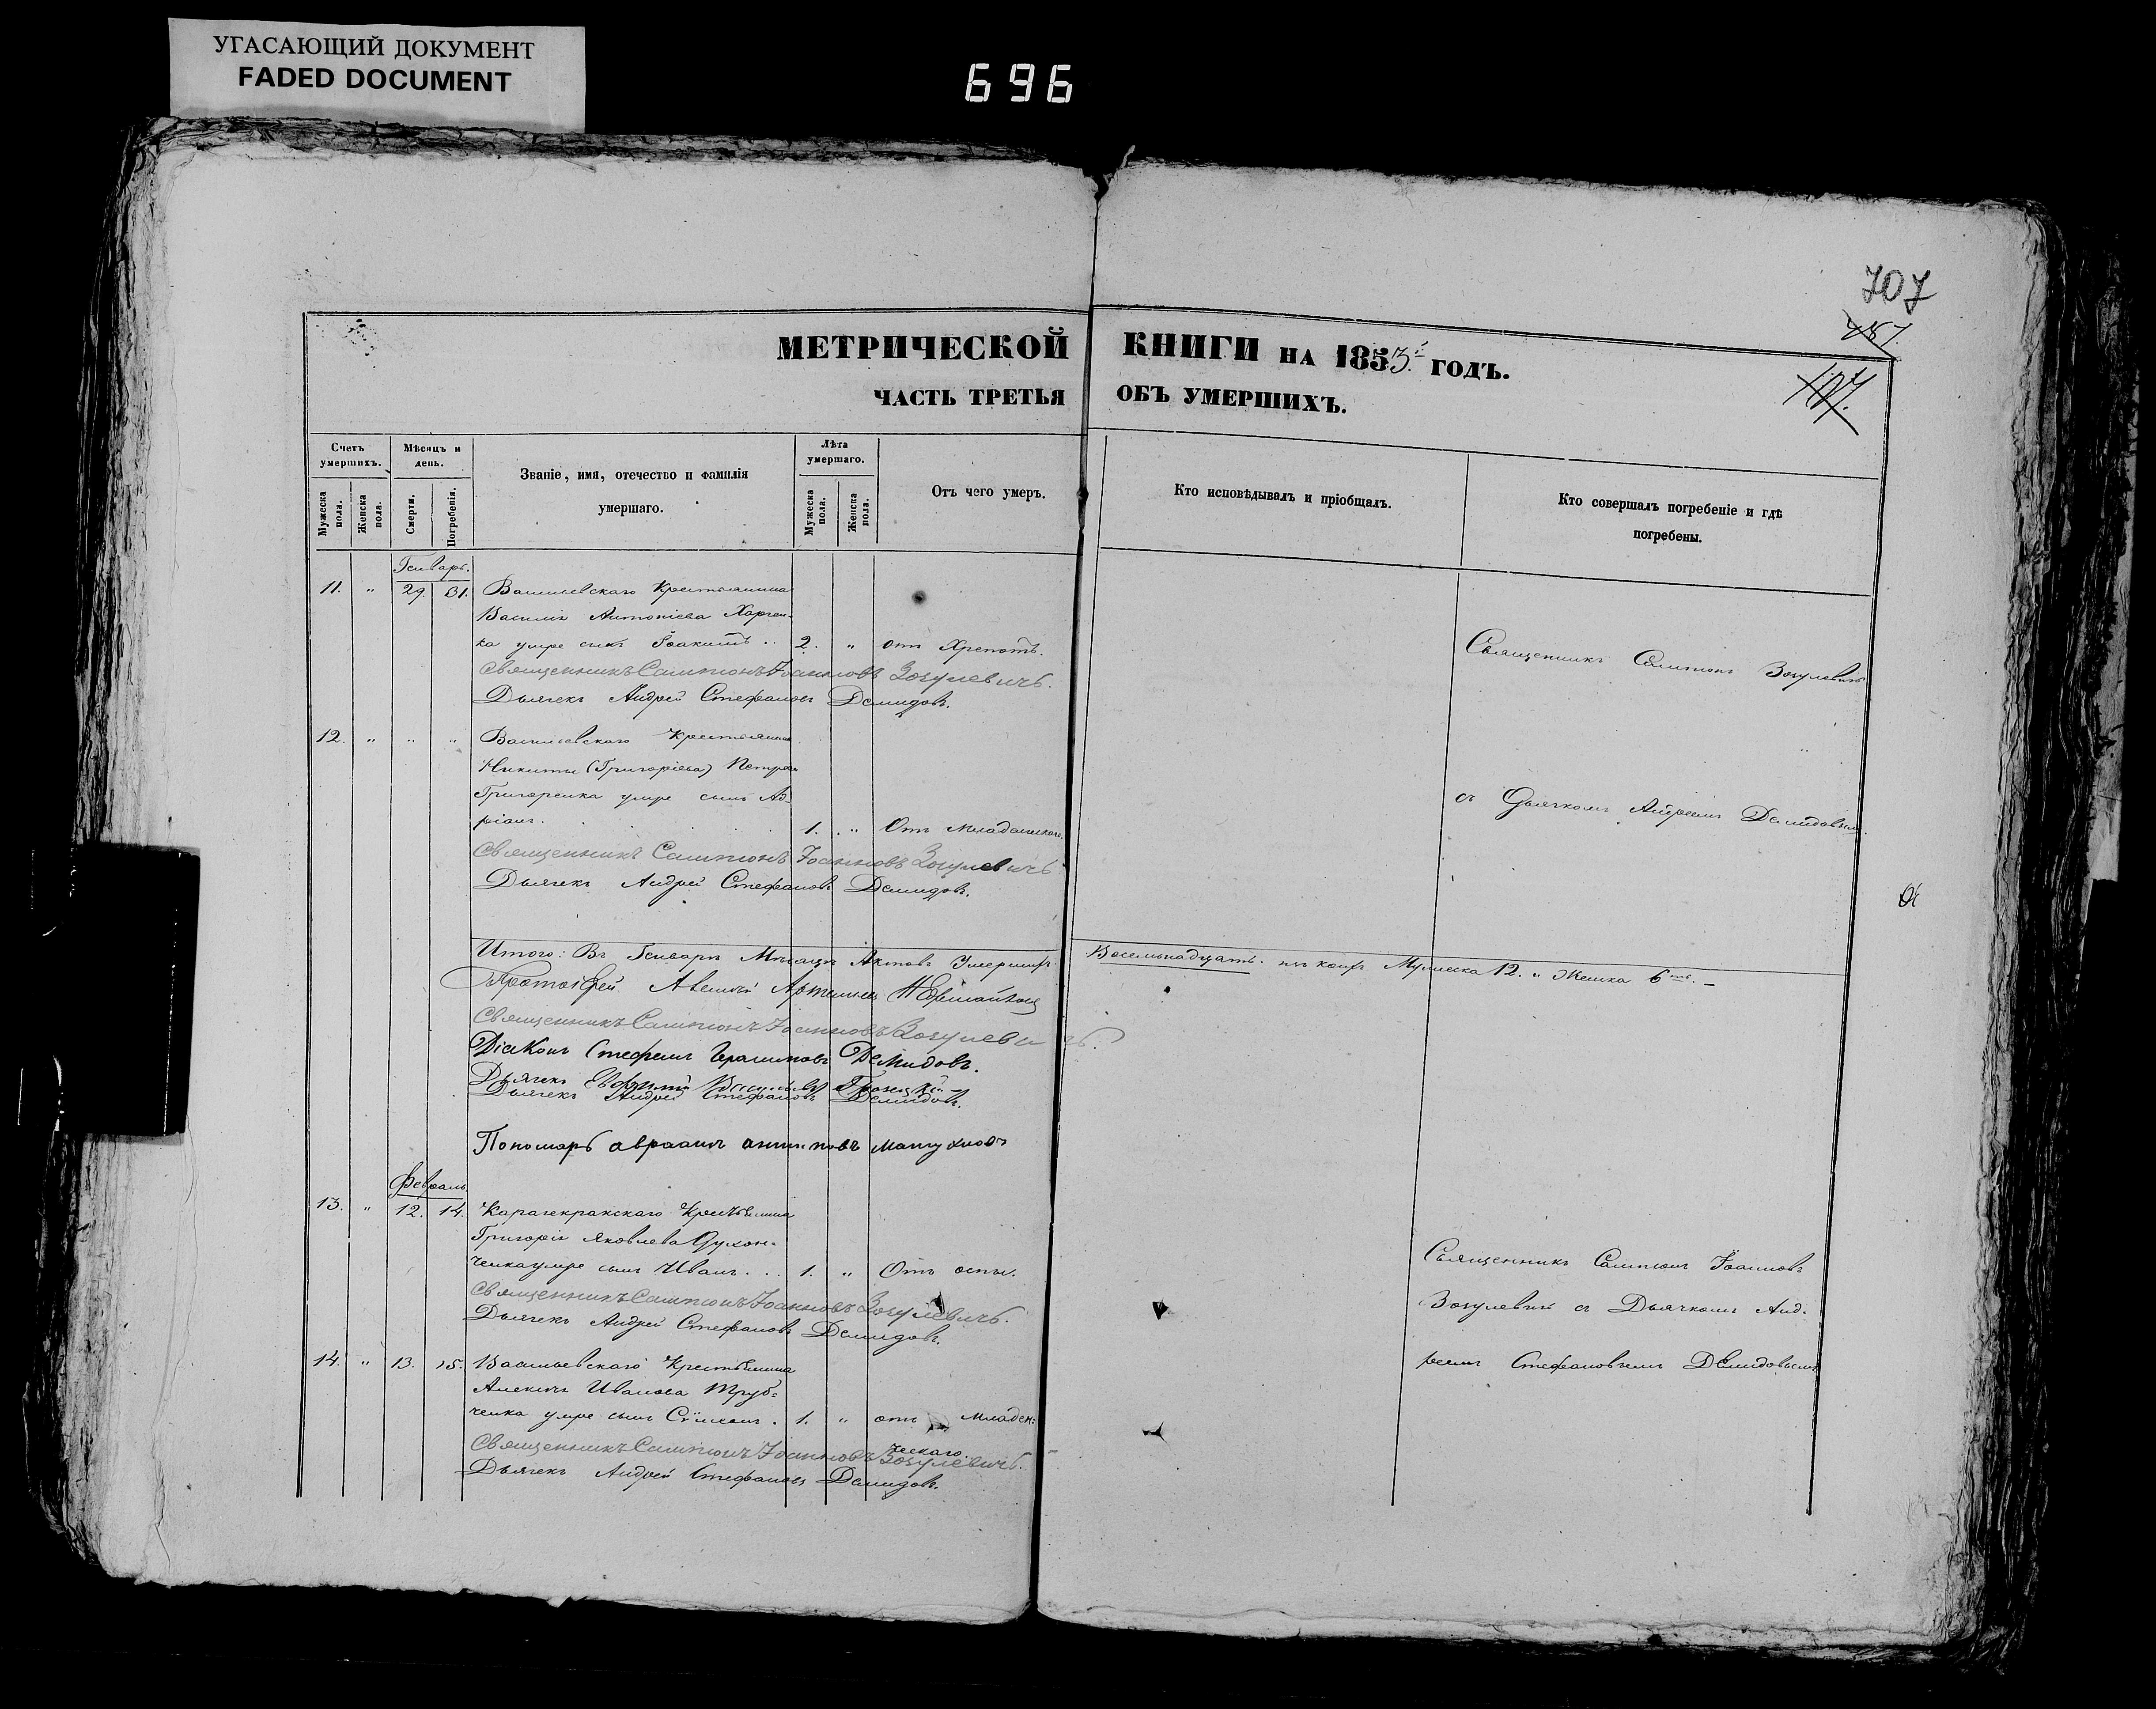 УГАСАЮЩИЙ ДОКУМЕНТ
FADED DOCUMENT
696
707
МЕТРИЧЕСКОЙ КНИГИ НА 1853й ГОДЪ.
ЧАСТЬ ТРЕТЬЯ ОБЪ УМЕРШИХЪ.
Счетъ умершихъ.
Мужеска пола.
Женска пола.
Мѣсяцъ и день.
Смерти.
Погребенія.
Званіе, имя, отечество и фамилія
умершаго.
Лѣта умершаго.
Мужеска пола.
Женска пола.
Отъ чего умеръ.
Кто исповѣдывалъ и пріобщалъ.
Кто совершалъ погребеніе и гдѣ
погребены.
Генварь.
11. " 29. 31. Васильевскаго Крестьянина
Василія Антоніева Харчен-
ка умре сынъ Іоакимъ .. 2. " отъ Хрепотъ.
Священникъ Сампсонъ Іоанновъ Зогулевичь.
Дьячекъ Андрей Стефановъ Демидовъ.
Священникъ Сампсонъ Зогулевичь
12. " " " Васильевскаго Крестьянина
Никиты (Григоріева) Петрова
Григоренка умре сынъ Ад-
ріанъ. 1. " Отъ младенческаго
Священникъ Сампсонъ Іоанновъ Зогулевичь
Дьячекъ Андрей Стефановъ Демидовъ.
съ Дьячкомъ Андреемъ Демидовымъ.
Итого: Въ Генварѣ Мѣсяцѣ Актовъ Умершихъ Восемьнадцать. изъ коихъ Мужеска 12. " Женска 6ть. –
Протоіерей
Священникъ Сампсонъ Іоанновъ Зогулевичь.
Діаконъ Стефанъ Демидовъ.
Дьячекъ Евфимій
Дьячекъ Андрей Стефановъ Демидовъ.
Пономарь авраамъ
Февраль
13. " 12. 14. Карачекракскаго Крестьянина
Григорія Яковлева Духон-
ченка умре сынъ Иванъ ... 1. " Отъ оспы.
Священникъ Сампсонъ Іоанновъ Зогулевичь.
Дьячекъ Андрей Стефановъ Демидовъ.
Священникъ Сампсонъ Іоанновъ
Зогулевичь съ Дьячкомъ Анд-
реемъ Стефановымъ Демидовымъ
14. " 13. 15. Васильевскаго Крестьянина
Алексѣя Иванова Труб-
ченка умре сынъ Сѵмеонъ . 1. " отъ младен-
ческаго.
Священникъ Сампсонъ Іоанновъ Зогулевичь.
Дьячекъ Андрей Стефановъ Демидовъ.